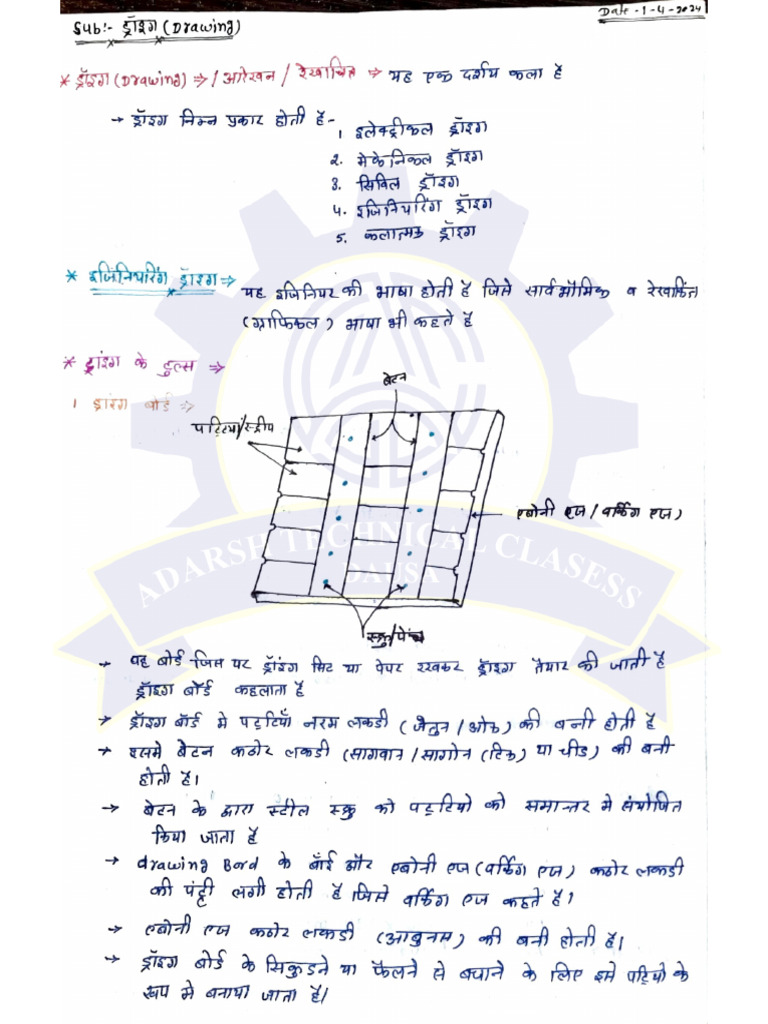 Sub:- ड्रॉइंग (Drawing)
Date -1-4-2024
* ड्रॉइंग (Drawing) ⇒ / आरेखन / रेखाचित्र ⇒ यह एक दर्शय कला है
→ ड्रॉइंग निम्न प्रकार होती है -
1. इलेक्ट्रीकल ड्रॉइंग
2. मेकेनिकल ड्रॉइंग
3. सिविल ड्रॉइंग
4. इंजिनियरिंग ड्रॉइंग
5. कलात्मक ड्रॉइंग
* इंजिनियरिंग ड्रॉइंग ⇒ यह इंजिनियर की भाषा होती है जिसे सार्वभौमिक व रेखांकित
(ग्राफिकल) भाषा भी कहते है
* ड्रांइग के टुल्स ⇒
1 ड्रांइग बोर्ड ⇒
बेटन
पट्टियां/स्ट्रीप
एबोनी एज / वर्किंग एज)
स्क्रु/पेंच
ADARSH TECHNICAL CLASESS
DAUSA
→ वह बोर्ड जिस पर ड्रॉइंग सिट या पेपर रखकर ड्रॉइंग तैयार की जाती है
ड्रॉइंग बोर्ड कहलाता है
→ ड्रॉइंग बॉर्ड मे पट्टियाँ नरम लकडी (जैतुन / ओक) की बनी होती है
→ इसमे बेटन कठोर लकडी (सागवान / सागोन (टिक) या चीड) की बनी
होती है।
→ बेटन के द्वारा स्टील स्क्रु को पट्टियो को समान्तर मे संयोजित
किया जाता है
→ drawing Bord के बाँई और एबोनी एज (वर्किंग एज) कठोर लकडी
की पट्टी लगी होती है जिसे वर्किंग एज कहते है।
→ एबोनी एज कठोर लकडी (आबुनस) की बनी होती है।
→ ड्रॉइंग बोर्ड के सिकुडने या फैलने से बचाने के लिए इसे पट्टियो के
रूप मे बनाया जाता है।